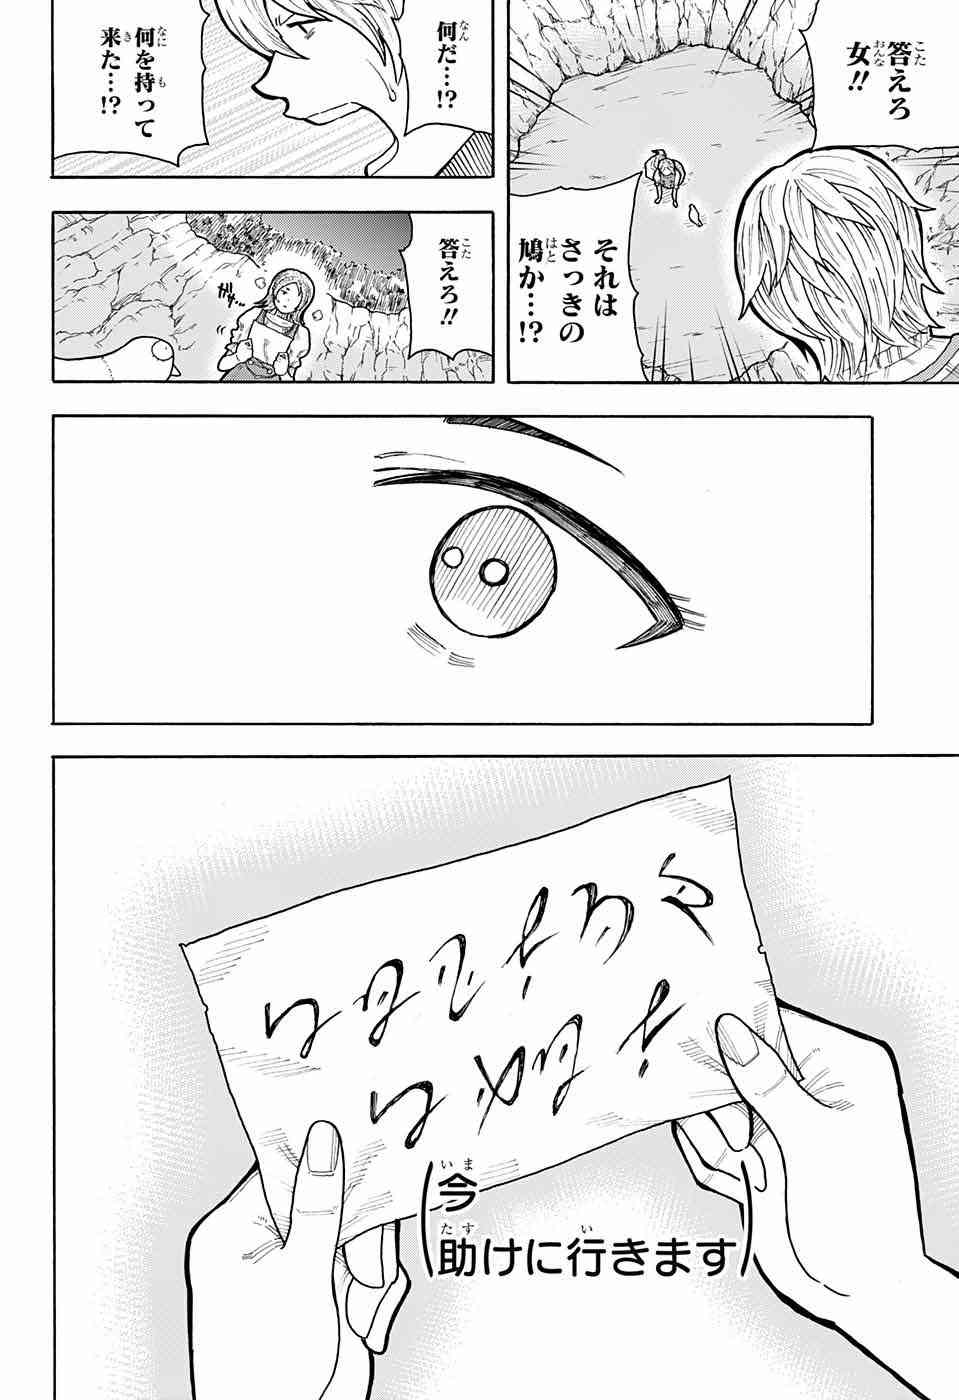 答えろ
女!!
それは
さっきの
鳩か…!?
何だ…!?
何を持って
来た…!?
答えろ!!
ガチ…
今
助けに行きます